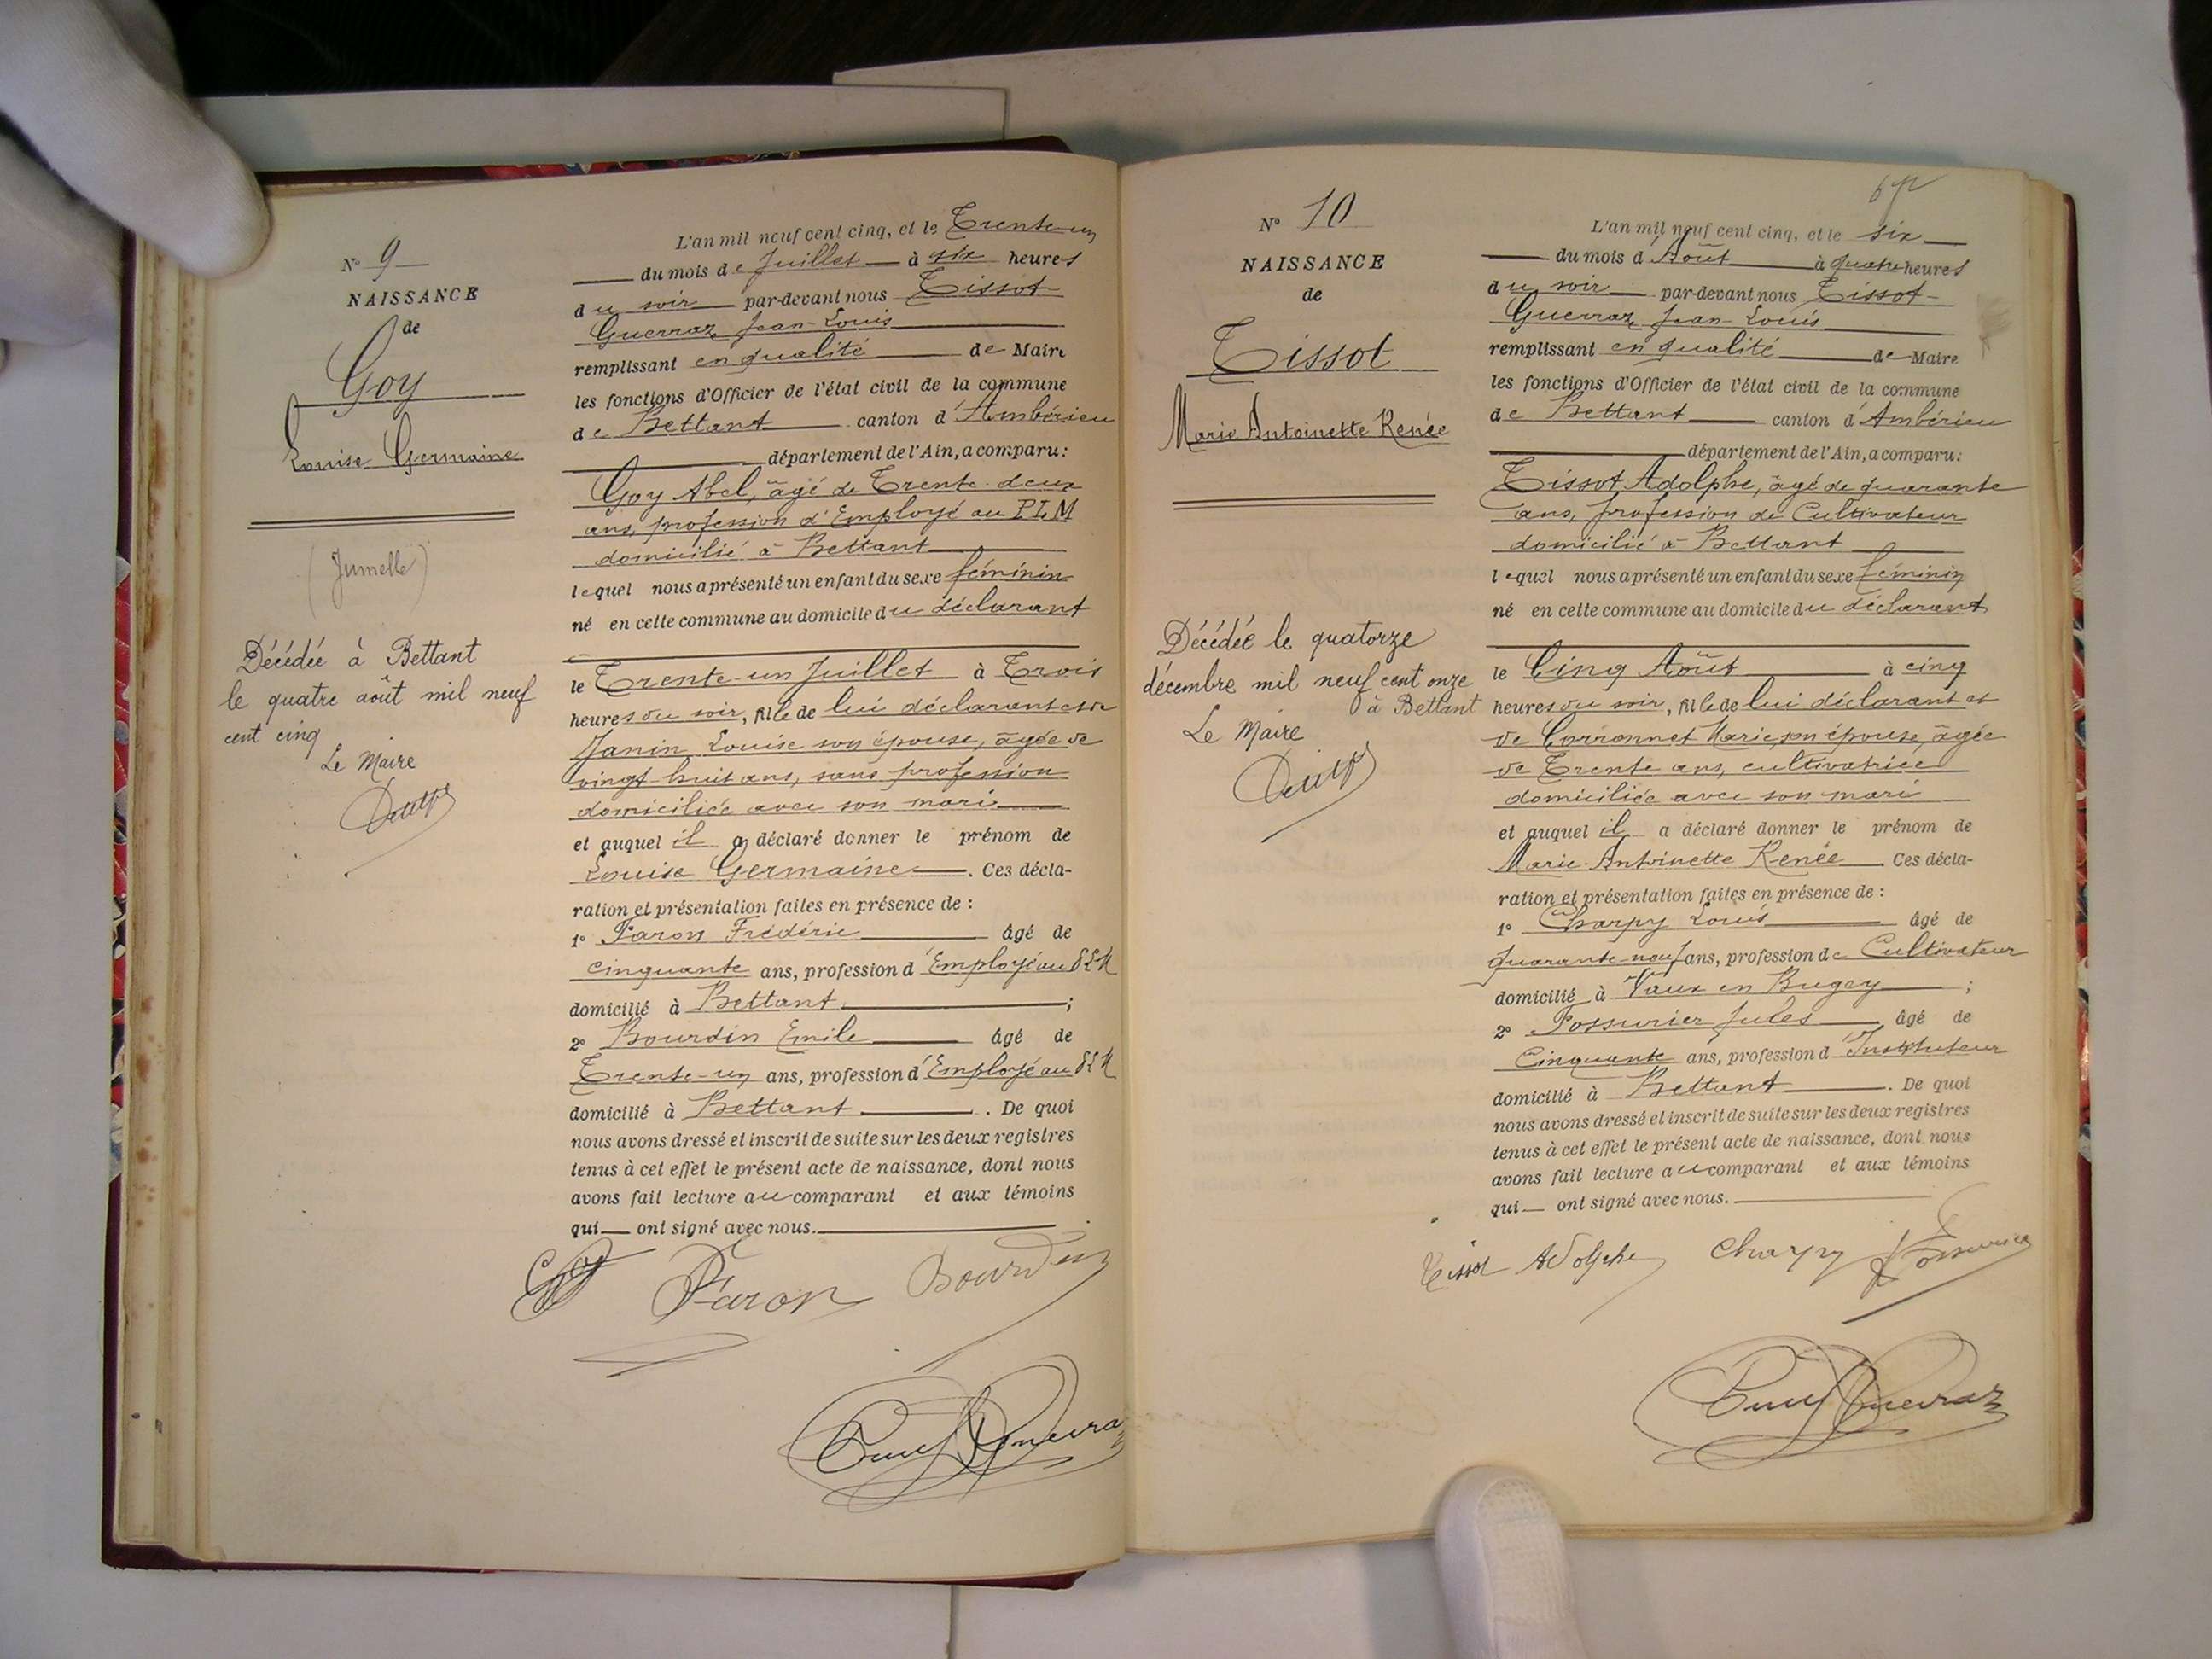 N° 9
NAISSANCE
de
Goy
Louise Germaine
(Jumelle)
Décédée à Bettant
le quatre août mil neuf
cent cinq
Le Maire
L'an mil neuf cent cinq, et le Trente-un
du mois de Juillet à six heures
du soir par-devant nous Tissot-
Guerraz Jean-Louis
remplissant en qualité de Maire
les fonctions d'Officier de l'état civil de la commune
de Bettant canton d'Ambérieu
département de l'Ain, a comparu:
Goy Abel, âgé de Trente-deux
ans, profession d'Employé au PLM
domicilié à Bettant
lequel nous a présenté un enfant du sexe féminin
né en cette commune au domicile du déclarant
le Trente-un Juillet à Trois
heures du soir, fille de lui déclarant et de
Janin Louise son épouse, âgée de
vingt-huit ans, sans profession
domiciliée avec son mari
et auquel il a déclaré donner le prénom de
Louise Germaine. Ces décla-
ration et présentation faites en présence de :
1° Faron Frédéric âgé de
cinquante ans, profession d'Employé au PLM
domicilié à Bettant ;
2° Bourdin Emile âgé de
Trente-un ans, profession d'Employé au PLM
domicilié à Bettant. De quoi
nous avons dressé et inscrit de suite sur les deux registres
tenus à cet effet le présent acte de naissance, dont nous
avons fait lecture au comparant et aux témoins
qui ont signé avec nous.
Goy Faron Bourdin
Guerraz
N° 10
NAISSANCE
de
Tissot
Marie Antoinette Renée
Décédée le quatorze
décembre mil neuf cent onze
à Bettant
Le Maire
L'an mil neuf cent cinq, et le six
du mois d'Août à quatre heures
du soir par-devant nous Tissot-
Guerraz Jean-Louis
remplissant en qualité de Maire
les fonctions d'Officier de l'état civil de la commune
de Bettant canton d'Ambérieu
département de l'Ain, a comparu:
Tissot Adolphe, âgé de quarante
ans, profession de Cultivateur
domicilié à Bettant
lequel nous a présenté un enfant du sexe féminin
né en cette commune au domicile du déclarant
le Cinq Août à cinq
heures du soir, fille de lui déclarant et
de Corronnet Marie, son épouse, âgée
de Trente ans, cultivatrice
domiciliée avec son mari
et auquel il a déclaré donner le prénom de
Marie-Antoinette Renée Ces décla-
ration et présentation faites en présence de :
1° Charpy Louis âgé de
quarante-neuf ans, profession de Cultivateur
domicilié à Vaux en Bugey ;
2° Fossurier Jules âgé de
Cinquante ans, profession d'Instituteur
domicilié à Bettant. De quoi
nous avons dressé et inscrit de suite sur les deux registres
tenus à cet effet le présent acte de naissance, dont nous
avons fait lecture au comparant et aux témoins
qui ont signé avec nous.
Tissot Adolphe Charpy Fossurier
Guerraz